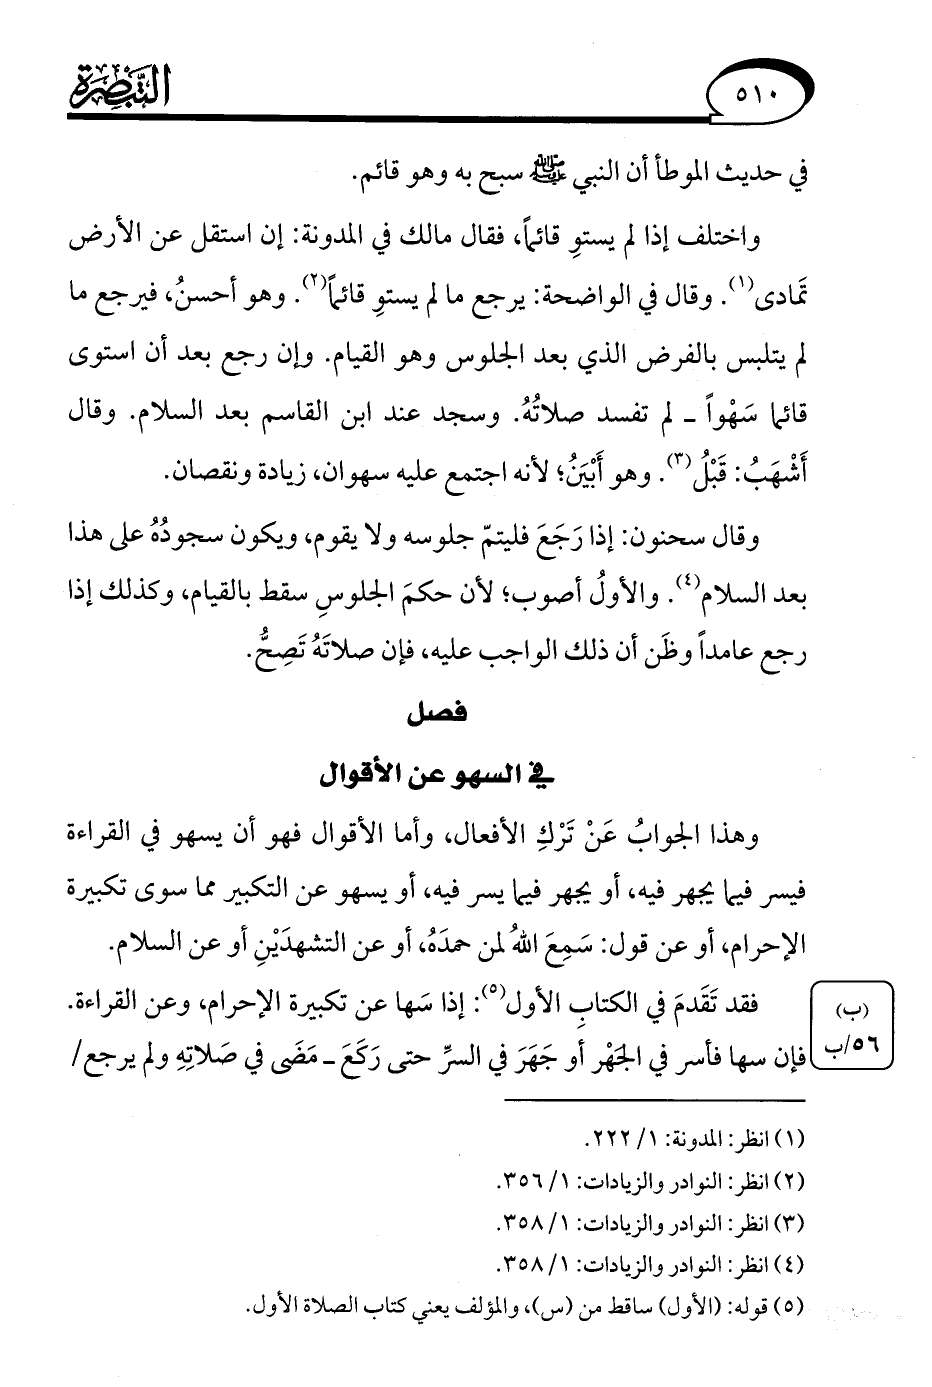 ٥١٠
التبصرة
في حديث الموطأ أن النبي ﷺ سبح به وهو قائم.
واختلف إذا لم يستوِ قائماً، فقال مالك في المدونة: إن استقل عن الأرض
تمادى(١). وقال في الواضحة: يرجع ما لم يستوِ قائماً(٢). وهو أحسنُ، فيرجع ما
لم يتلبس بالفرض الذي بعد الجلوس وهو القيام. وإن رجع بعد أن استوى
قائما سَهْواً ـ لم تفسد صلاتُهُ. وسجد عند ابن القاسم بعد السلام. وقال
أَشْهَبُ: قَبْلُ(٣). وهو أَبْيَنُ؛ لأنه اجتمع عليه سهوان، زيادة ونقصان.
وقال سحنون: إذا رَجَعَ فليتمّ جلوسه ولا يقوم، ويكون سجودُهُ على هذا
بعد السلام(٤). والأولُ أصوب؛ لأن حكمَ الجلوسِ سقط بالقيام، وكذلك إذا
رجع عامداً وظَن أن ذلك الواجب عليه، فإن صلاتَهُ تَصِحُّ.
فصل
في السهو عن الأقوال
وهذا الجوابُ عَنْ تَرْكِ الأفعال، وأما الأقوال فهو أن يسهو في القراءة
فيسر فيما يجهر فيه، أو يجهر فيما يسر فيه، أو يسهو عن التكبير مما سوى تكبيرة
الإحرام، أو عن قول: سَمِعَ اللهُ لمن حمدَهُ، أو عن التشهدَيْنِ أو عن السلام.
فقد تَقَدمَ في الكتابِ الأول(٥): إذا سَها عن تكبيرة الإحرام، وعن القراءة.
فإن سها فأسر في الجَهْر أو جَهَرَ في السرِّ حتى رَكَعَ ـ مَضَى في صَلاتِهِ ولم يرجع/
(ب)
٥٦/ب
(١) انظر: المدونة: ١/ ٢٢٢.
(٢) انظر: النوادر والزيادات: ١/ ٣٥٦.
(٣) انظر: النوادر والزيادات: ١/ ٣٥٨.
(٤) انظر: النوادر والزيادات: ١/ ٣٥٨.
(٥) قوله: (الأول) ساقط من (س)، والمؤلف يعني كتاب الصلاة الأول.